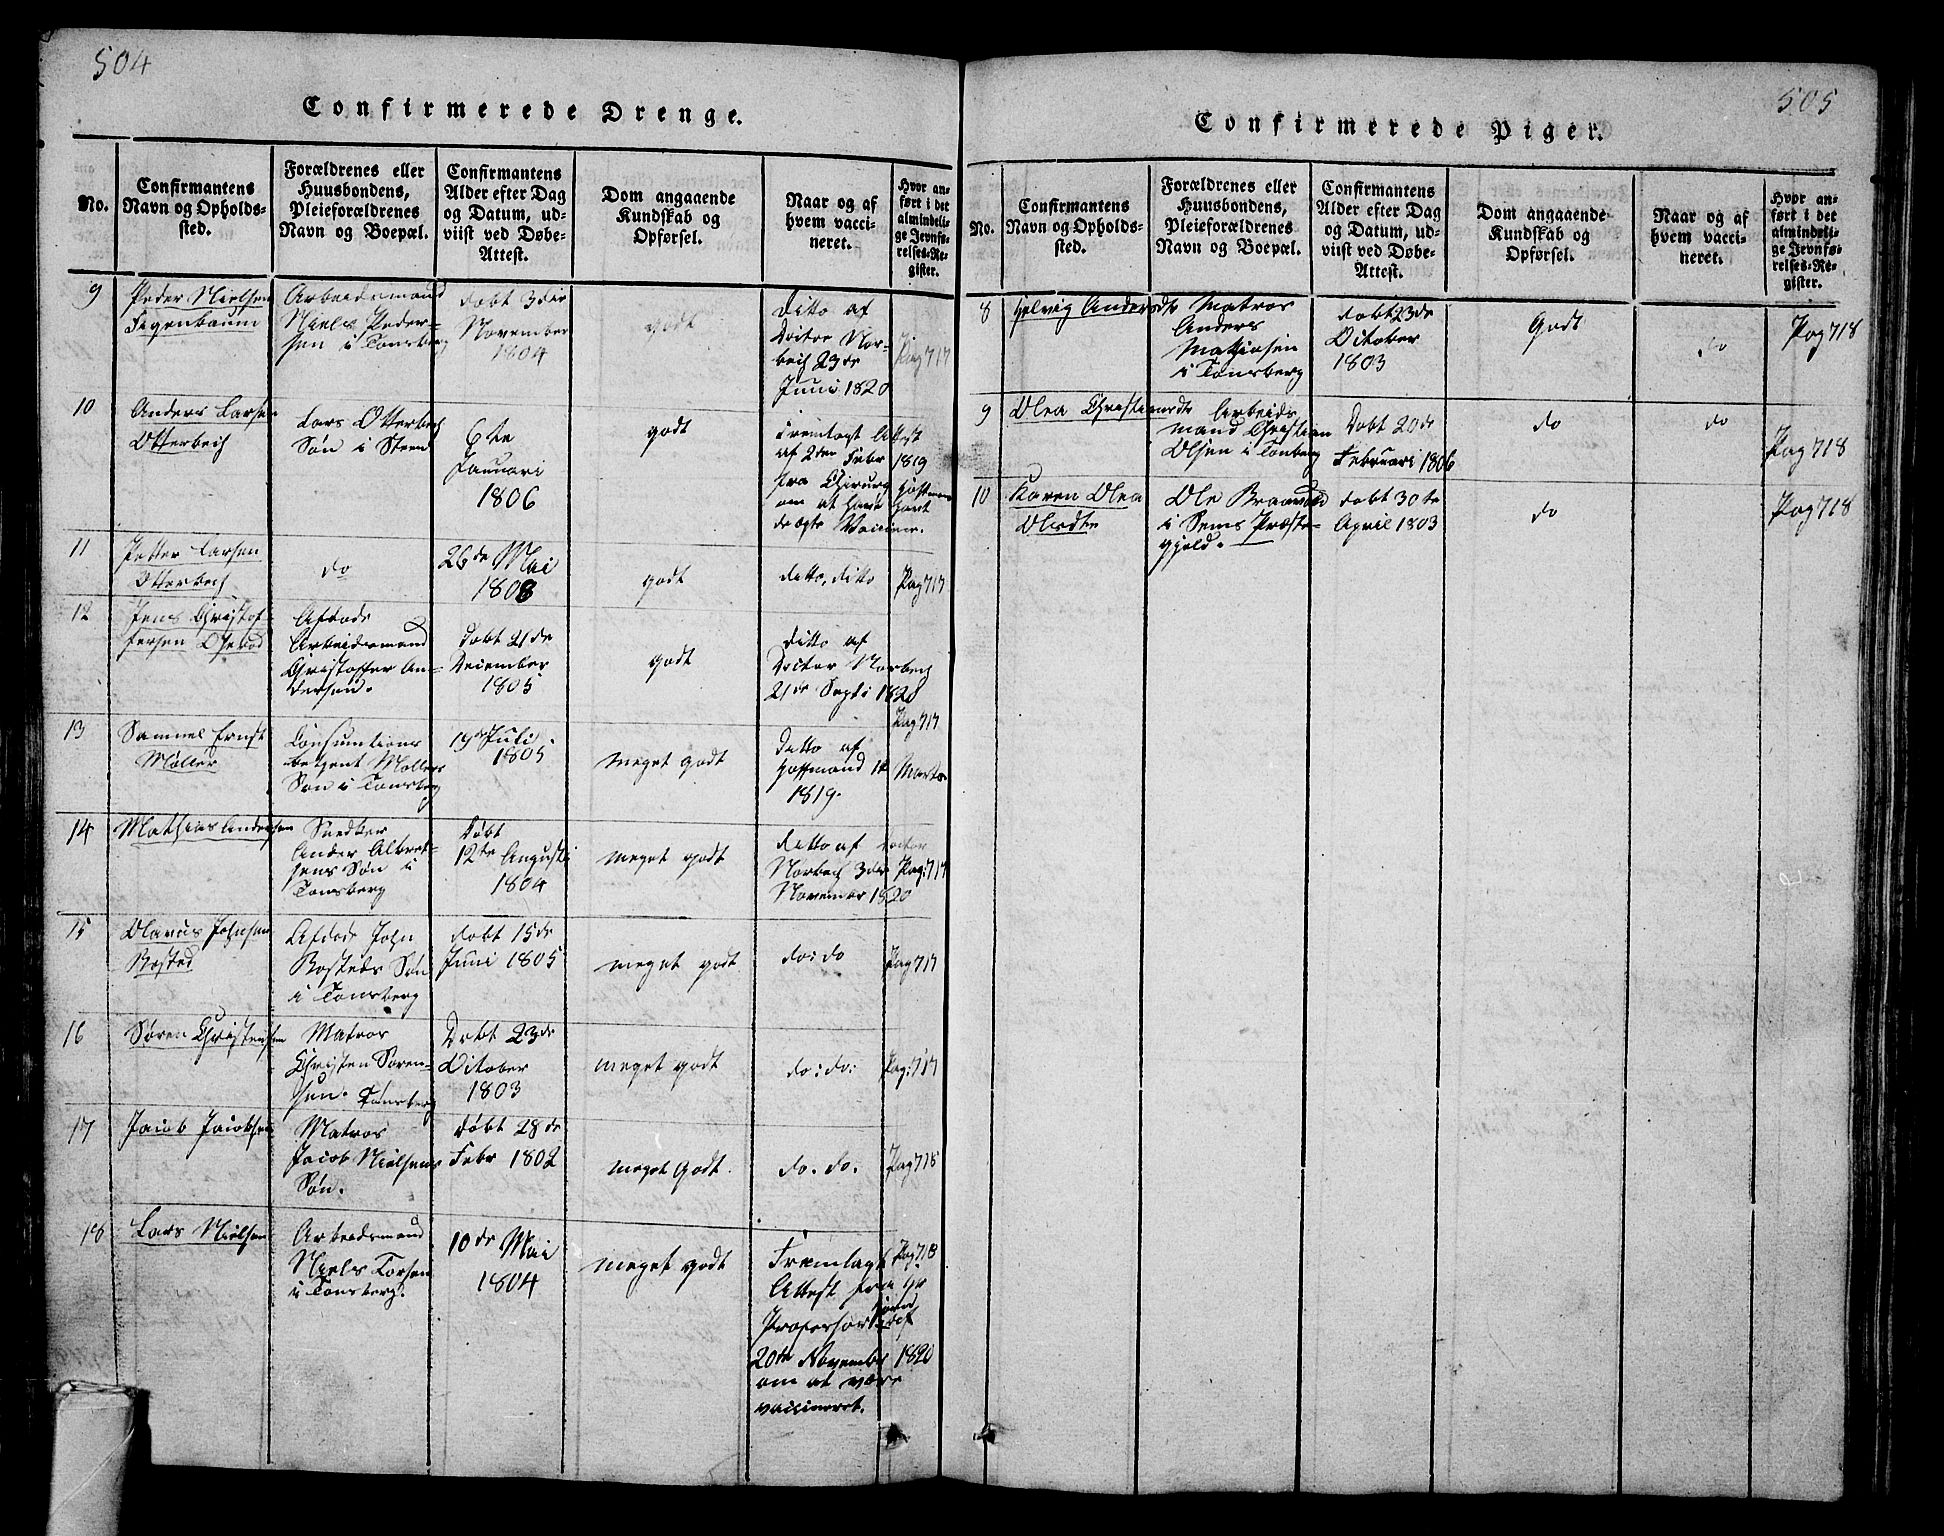 504
Confirmerede Drenge.
No.
Confirmantens
Navn og Opholds-
sted.
Forældrenes eller
Huusbondens,
Pleieforældrenes
Navn og Boepæl.
Confirmantens
Alder efter Dag
og Datum, ud-
viist ved Døbe-
Attest.
Dom angaaende
Kundskab og
Opførsel.
Naar og af
hvem vacci-
neret.
Hvor an-
ført i det
almindeli-
ge Jevnfø-
relses-Re-
gister.
9
Peder Nielsen
Figenbaum
Arbeidsmand
Niels Peder-
sen i Tønsberg
døbt 3die
November
1804
godt
Ditto af
Doctor Nor-
bech 23de
Juni 1820
Pag 717
10
Anders Larsen
Otterbech
Lars Otterbech
Søn i Steen
6te
Januari
1806
godt
Fremlagt Attest
af 2den Febr 1819
fra Chirurg Hoffmann
om at have havt
de ægte Vacciner.
11
Petter Larsen
Otterbech
do
26de Mai
1808
godt
ditto, ditto
Pag 717
12
Jens Christof-
fersen
Afdøde
Arbeidsmand
Christoffer An-
dersen.
døbt 21de
December
1805
godt
Ditto af
Doctor Norbech
21de Septr 1820
Pag 717
13
Samuel Ernst
Møller
Consumtions
betjent Møllers
Søn i Tønsberg
19de Juli
1805
meget godt
Ditto af
Hoffmand 12 Marts
1819.
14
Mathias Andersen
Snedker
Ander Albret-
sens Søn i
Tønsberg
Døbt
12te Augusti
1804
meget godt
Ditto af Doctor
Norbech 3die
November 1820
Pag: 717
15
Olavus Johnsen
Rosted
Afdøde John
Rosteds Søn
i Tønsberg
døbt 15de
Juni 1805
meget godt
do: do
Pag 717
16
Søren Christensen
Matros
Christen Søren-
sen. Tønsberg
Døbt 23de
October
1803
meget godt
do: do:
Pag: 717
17
Jacob Jacobsen
Matros
Jacob Nielsens
Søn.
døbt 28de
Febr 1802
meget Godt.
do. do.
Pag 715
18
Lars Nielsen
Arbeidsmand
Niels Torsen
i Tønsberg.
10de Mai
1804
meget godt
Fremlagt
Attest fra Hr
Professor af
20de Novembr 1820
om at være
vaccineret.
Pag 718
505
Confirmerede Piger.
No.
Confirmantens
Navn og Opholds-
sted.
Forældrenes eller
Huusbondens,
Pleieforældrenes
Navn og Boepæl.
Confirmantens
Alder efter Dag
og Datum, ud-
viist ved Døbe-
Attest.
Dom angaaende
Kundskab og
Opførsel.
Naar og af
hvem vacci-
neret.
Hvor an-
ført i det
almindeli-
ge Jevnfø-
relses-Re-
gister.
8
Helvig Andersdtr
Matros
Anders
Mathiasen
i Tønsberg
døbt 23de
October
1803
Godt
do
Pag 718
9
Olea Christiansdtr
Arbeids
mand Christian
Olsen i Tønberg
Døbt 20de
Februari 1806
do
do
Pag 718
10
Karen Olea
Olesdtr
Ole
i Sems Præste-
gjeld.
døbt 30te
April 1803
do
Pag 718